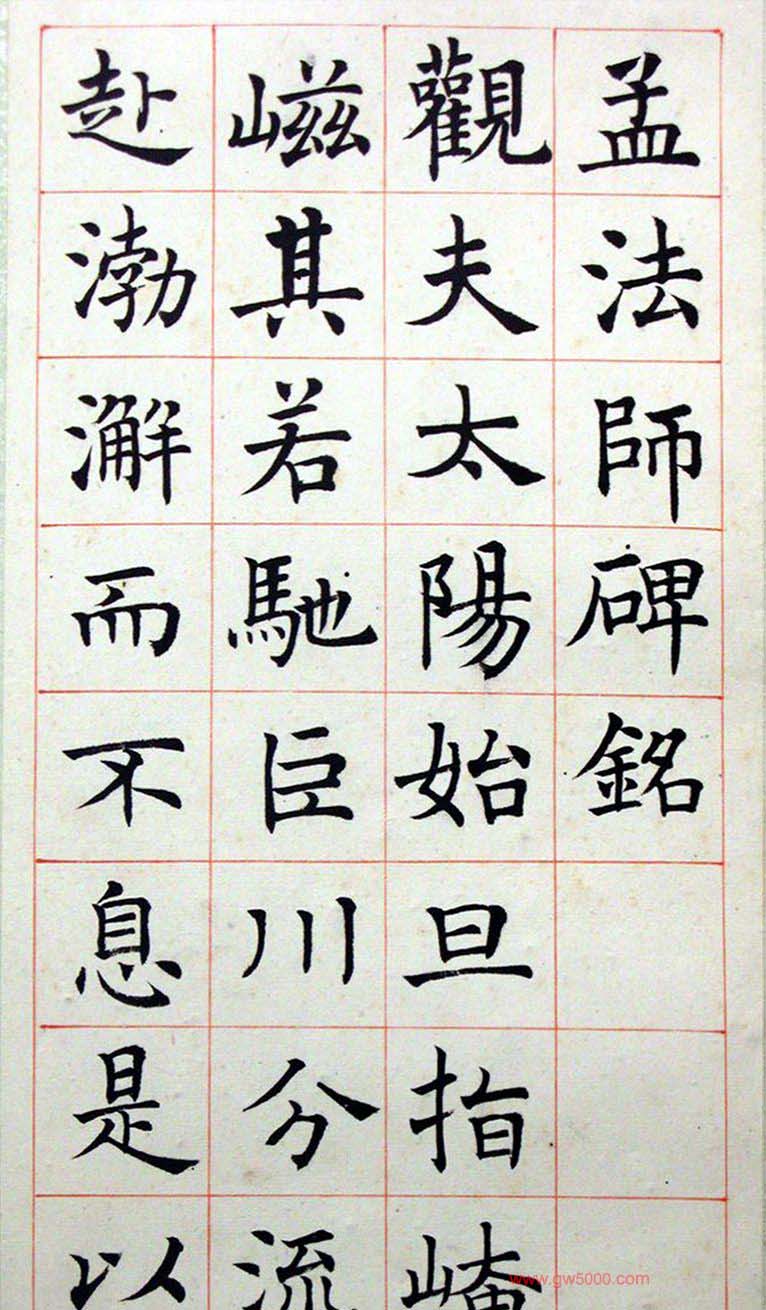 孟法師碑銘
觀夫太陽始旦指崦
嵫其若馳巨川分流
赴渤澥而不息是以
www.gw5000.com